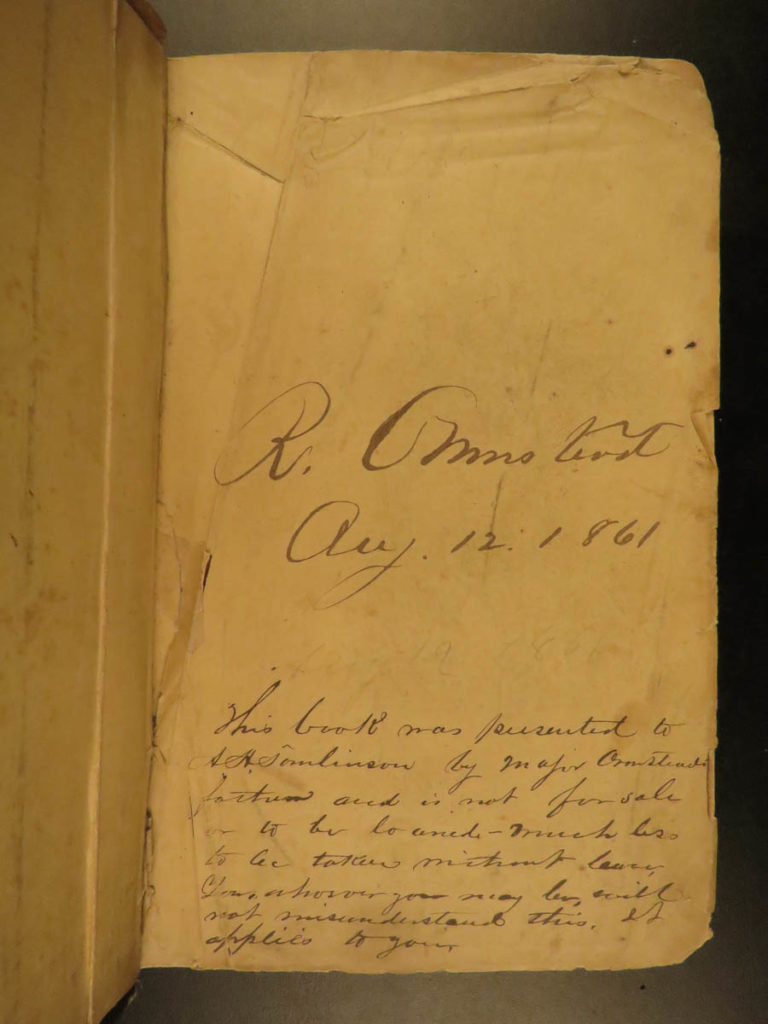 R. Ormstead
Aug. 12. 1861
This book was presented to
A H Tomlinson by Major Ormsteads
father and is not for sale
or to be loaned - much less
to be taken without leave,
You, whoever you may be, will
not misunderstand this. It
applies to you,